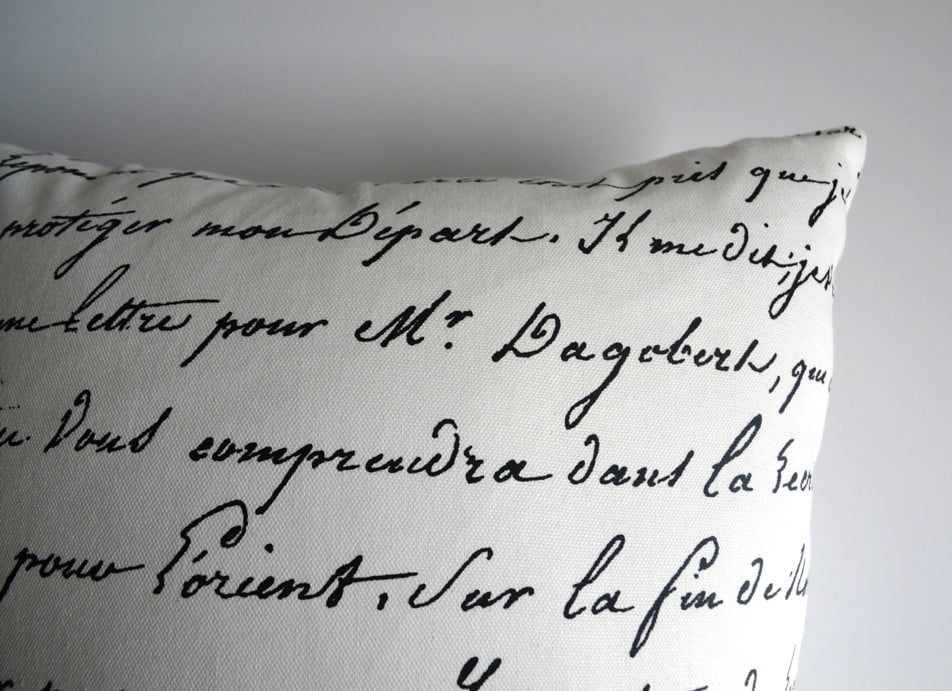 prêt que j
protéger mon Départ. Il me dit, je
lettre pour Mr. Dagobert, que
Vous comprendra dans la
pour l'orient. Sur la fin de